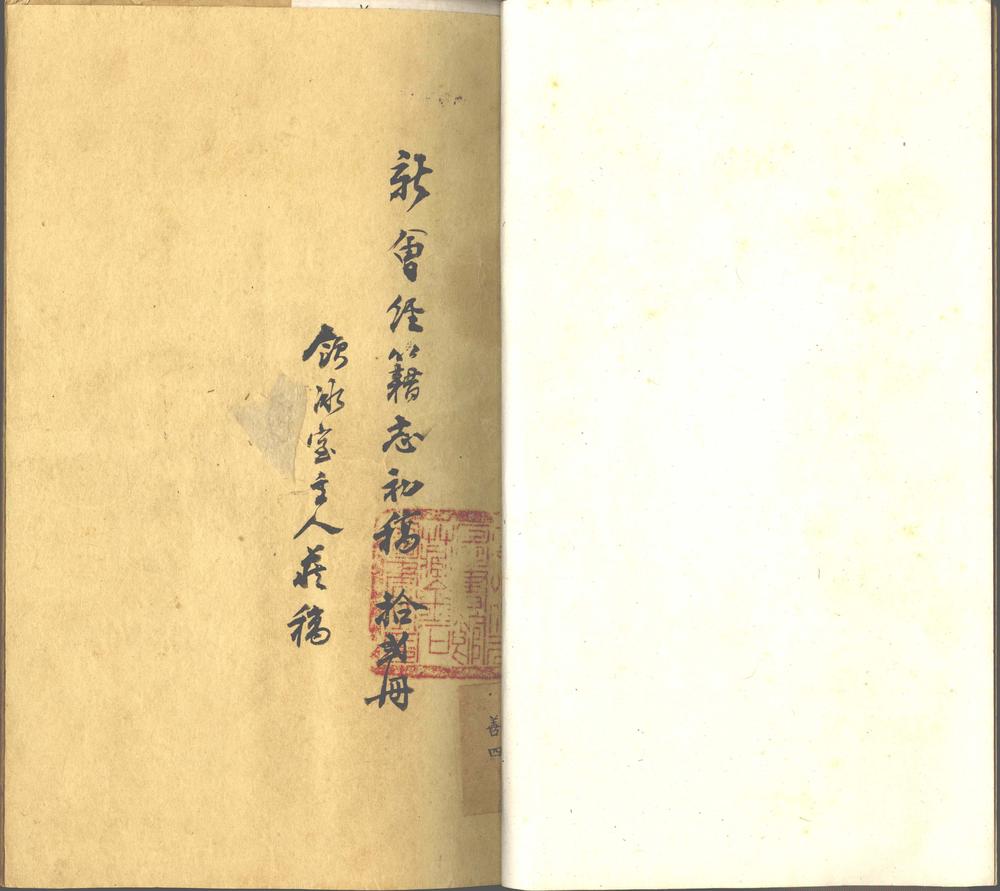 新會經籍志初稿 拾貳冊
飲冰室主人藏稿
善
四